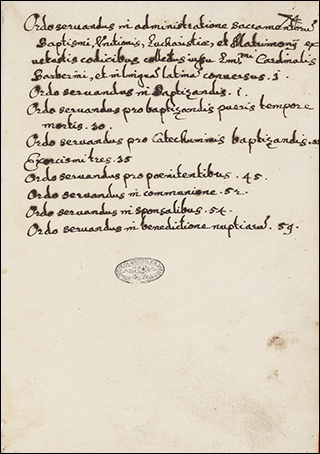 Ordo servandus in administratione Sacramentorũ
Baptismi, Unctionis, Eucharistiæ, et Matrimonij ex
vetustis codicibus collectus iussu Em.mi Cardinalis
Barberini, et in linguã latinã conversus. 1.
Ordo servandus in Baptizandis. 1.
Ordo servandus pro baptizandis pueris tempore
mortis. 30.
Ordo servandus pro Catechumenis baptizandis.
Exorcismi tres. 35
Ordo servandus pro poenitentibus. 45.
Ordo servandus in communione. 52.
Ordo servandus in sponsalibus. 54.
Ordo servandus in benedictione nuptiarũ. 59.